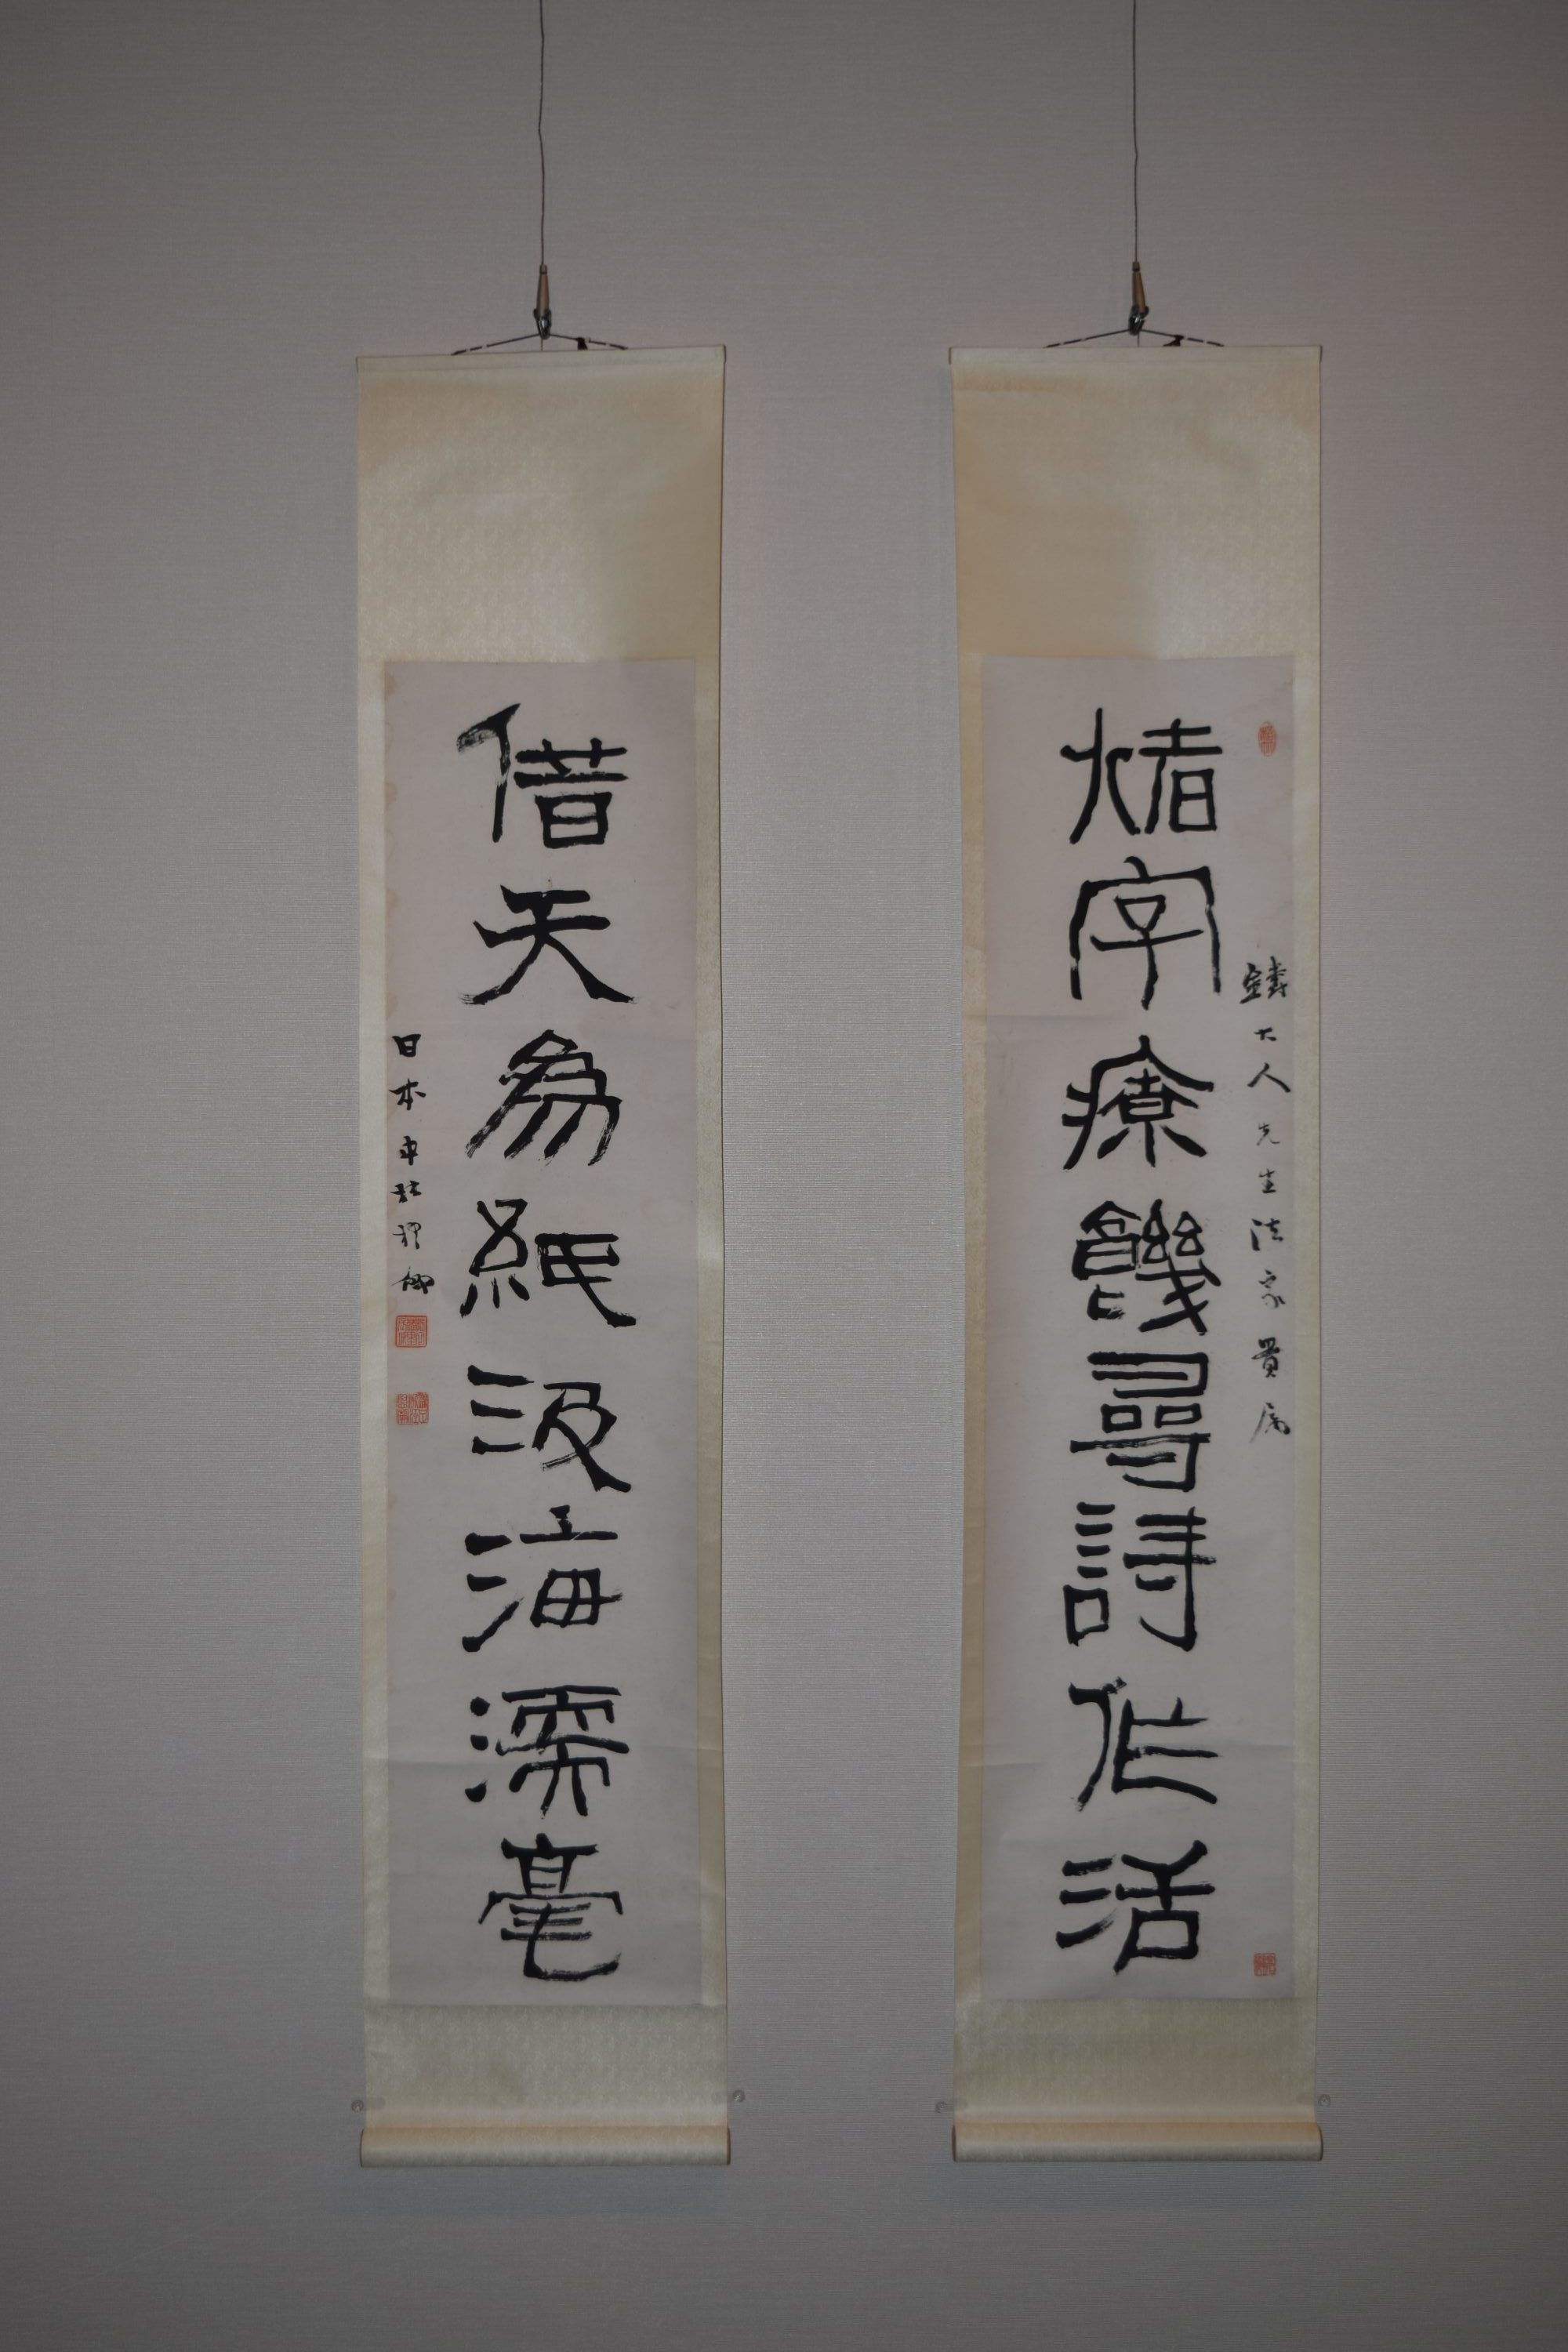 鑄大人先生法家貴属
煮字療饑尋詩作活
借天為紙汲海濡毫
日本